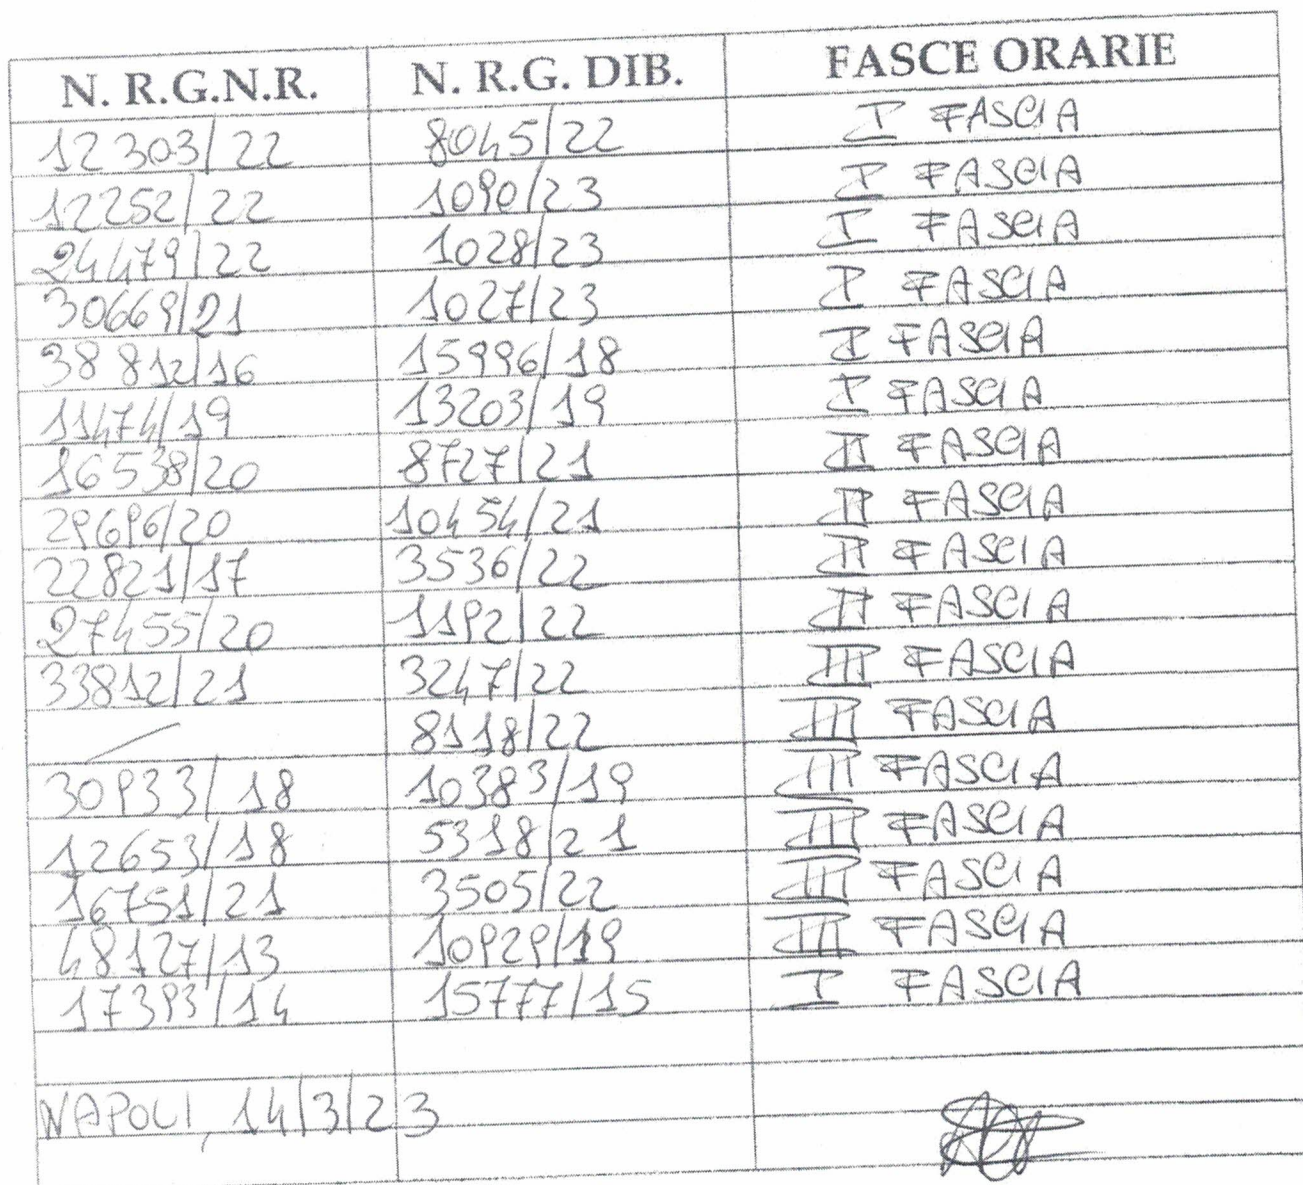 N. R.G.N.R. N. R.G. DIB. FASCE ORARIE
12303/22 8045/22 I FASCIA
12252/22 1090/23 I FASCIA
24479/22 1028/23 I FASCIA
30669/21 1027/23 I FASCIA
38812/16 15996/18 I FASCIA
11474/19 13203/19 I FASCIA
16538/20 8727/21 II FASCIA
29696/20 10454/21 II FASCIA
22821/17 3536/22 II FASCIA
27455/20 1192/22 II FASCIA
33812/21 3247/22 III FASCIA
/ 8118/22 III FASCIA
30933/18 10383/19 III FASCIA
12653/18 5318/21 III FASCIA
16751/21 3505/22 III FASCIA
48127/13 10929/19 III FASCIA
17393/14 15777/15 I FASCIA
NAPOLI, 14/3/23